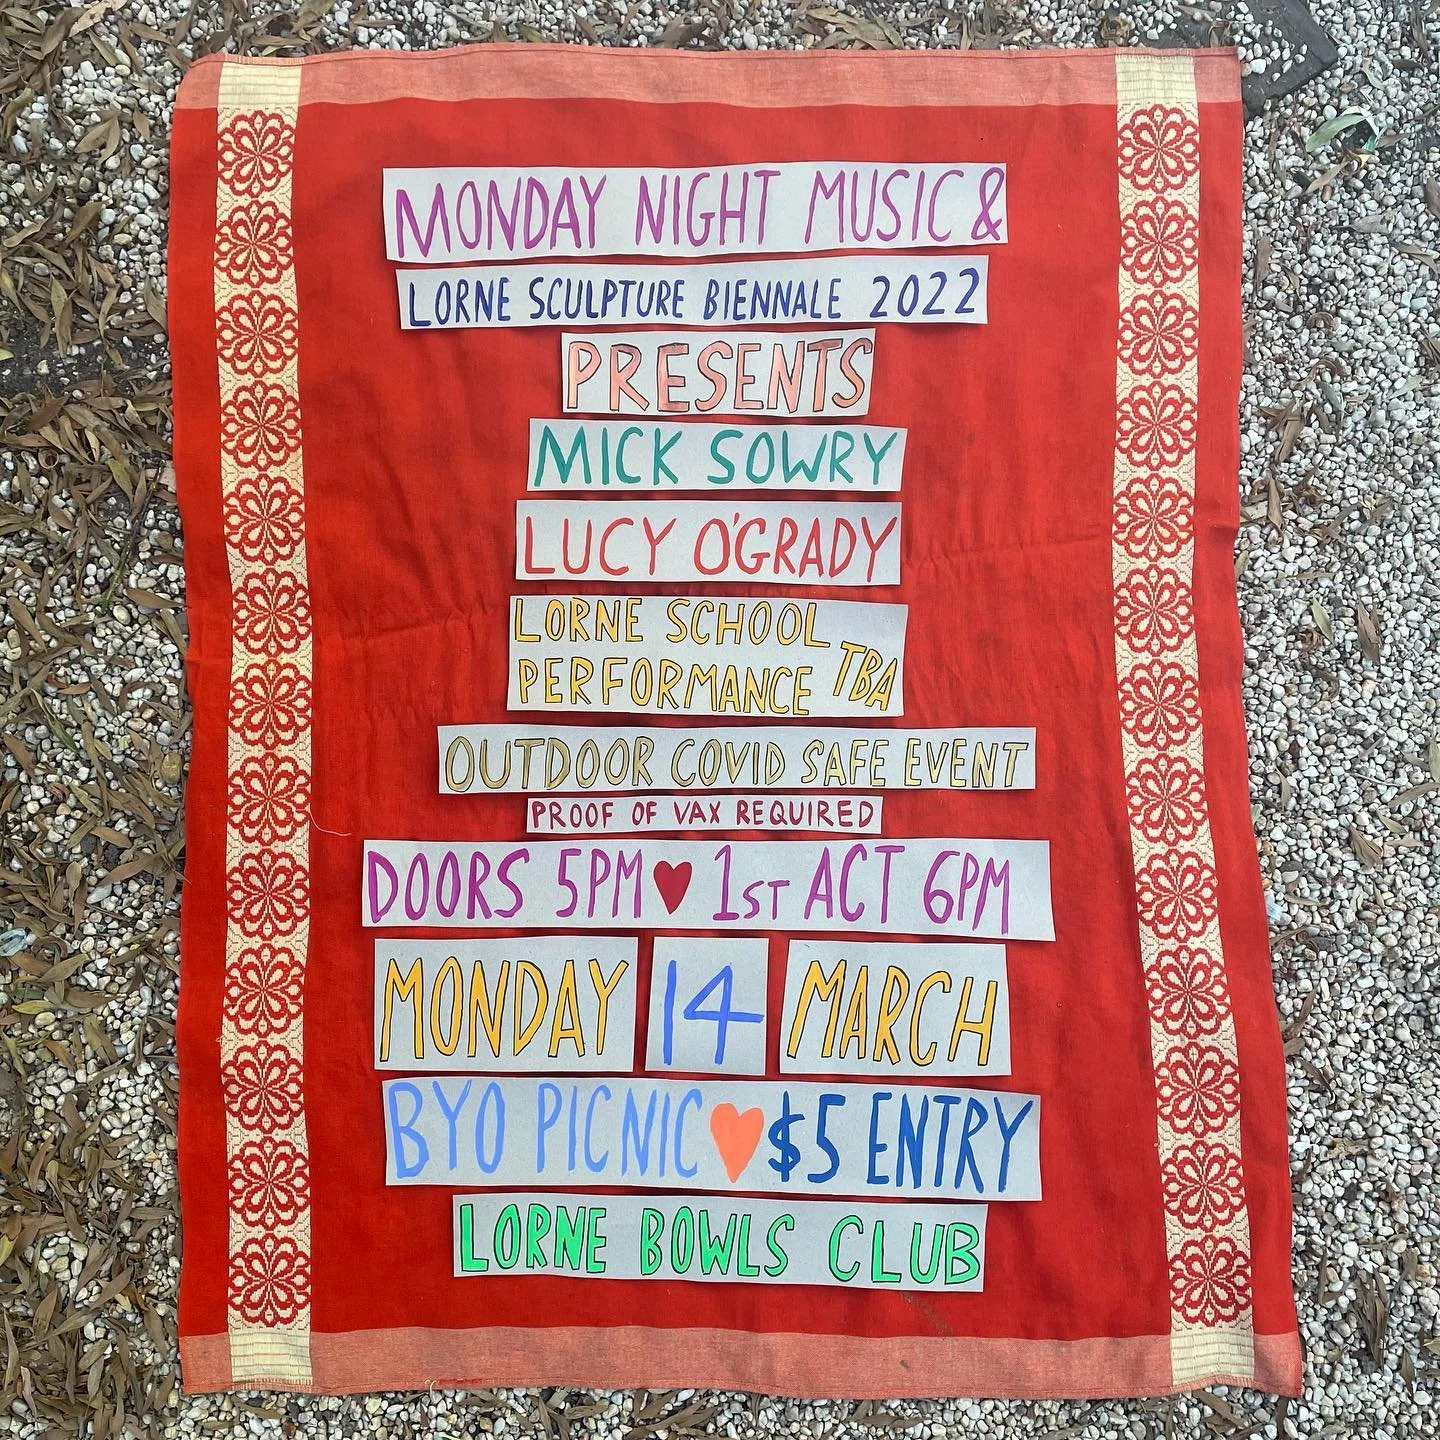 MONDAY NIGHT MUSIC &
LORNE SCULPTURE BIENNALE 2022
PRESENTS
MICK SOWRY
LUCY O'GRADY
LORNE SCHOOL
PERFORMANCE TBA
OUTDOOR COVID SAFE EVENT
PROOF OF VAX REQUIRED
DOORS 5PM ♥ 1ST ACT 6PM
MONDAY 14 MARCH
BYO PICNIC ♥ $5 ENTRY
LORNE BOWLS CLUB